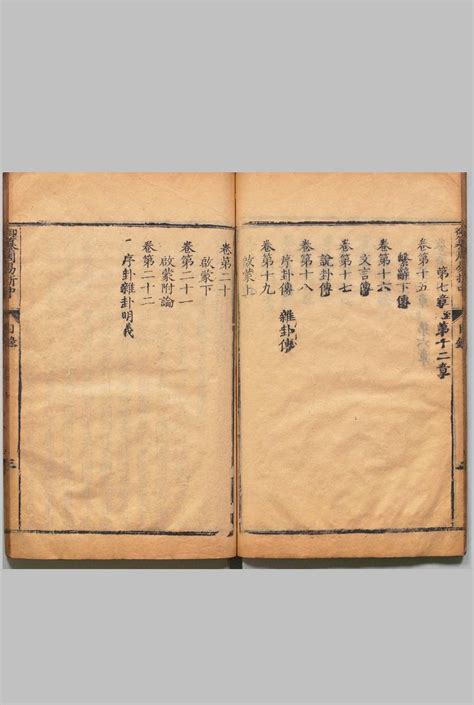 第七章至第十二章
卷第十五
繫辭下傳
卷第十六
文言傳
卷第十七
說卦傳
卷第十八
序卦傳 雜卦傳
卷第十九
啟蒙上
目錄
卷第二十
啟蒙下
卷第二十一
啟蒙附論
卷第二十二
序卦雜卦明義
御纂周易折中
目錄
三